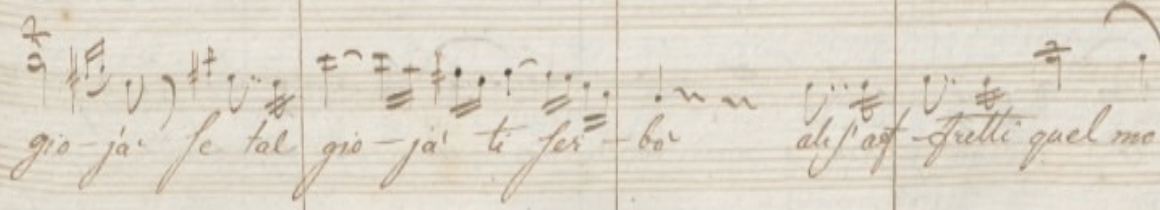 gio-ja' se tal gio-ja' ti ser-bò ah s'af-fretti quel mo